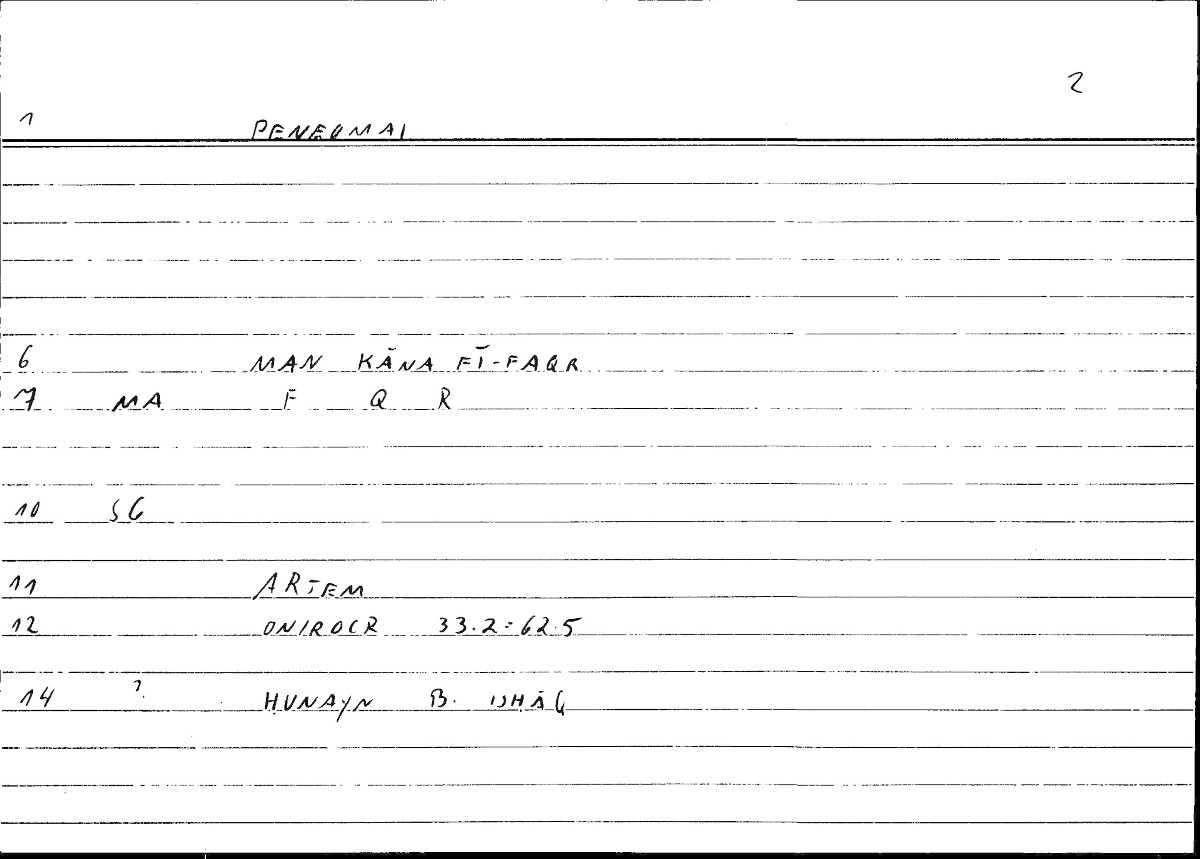 2
1 PENEOMAI
6 MAN KĀNA FĪ-FAQR
7 MA F Q R
10 SG
11 ARTEM
12 ONIROCR 33.2 = 62.5
14 ? ḤUNAYN B. ISHĀQ